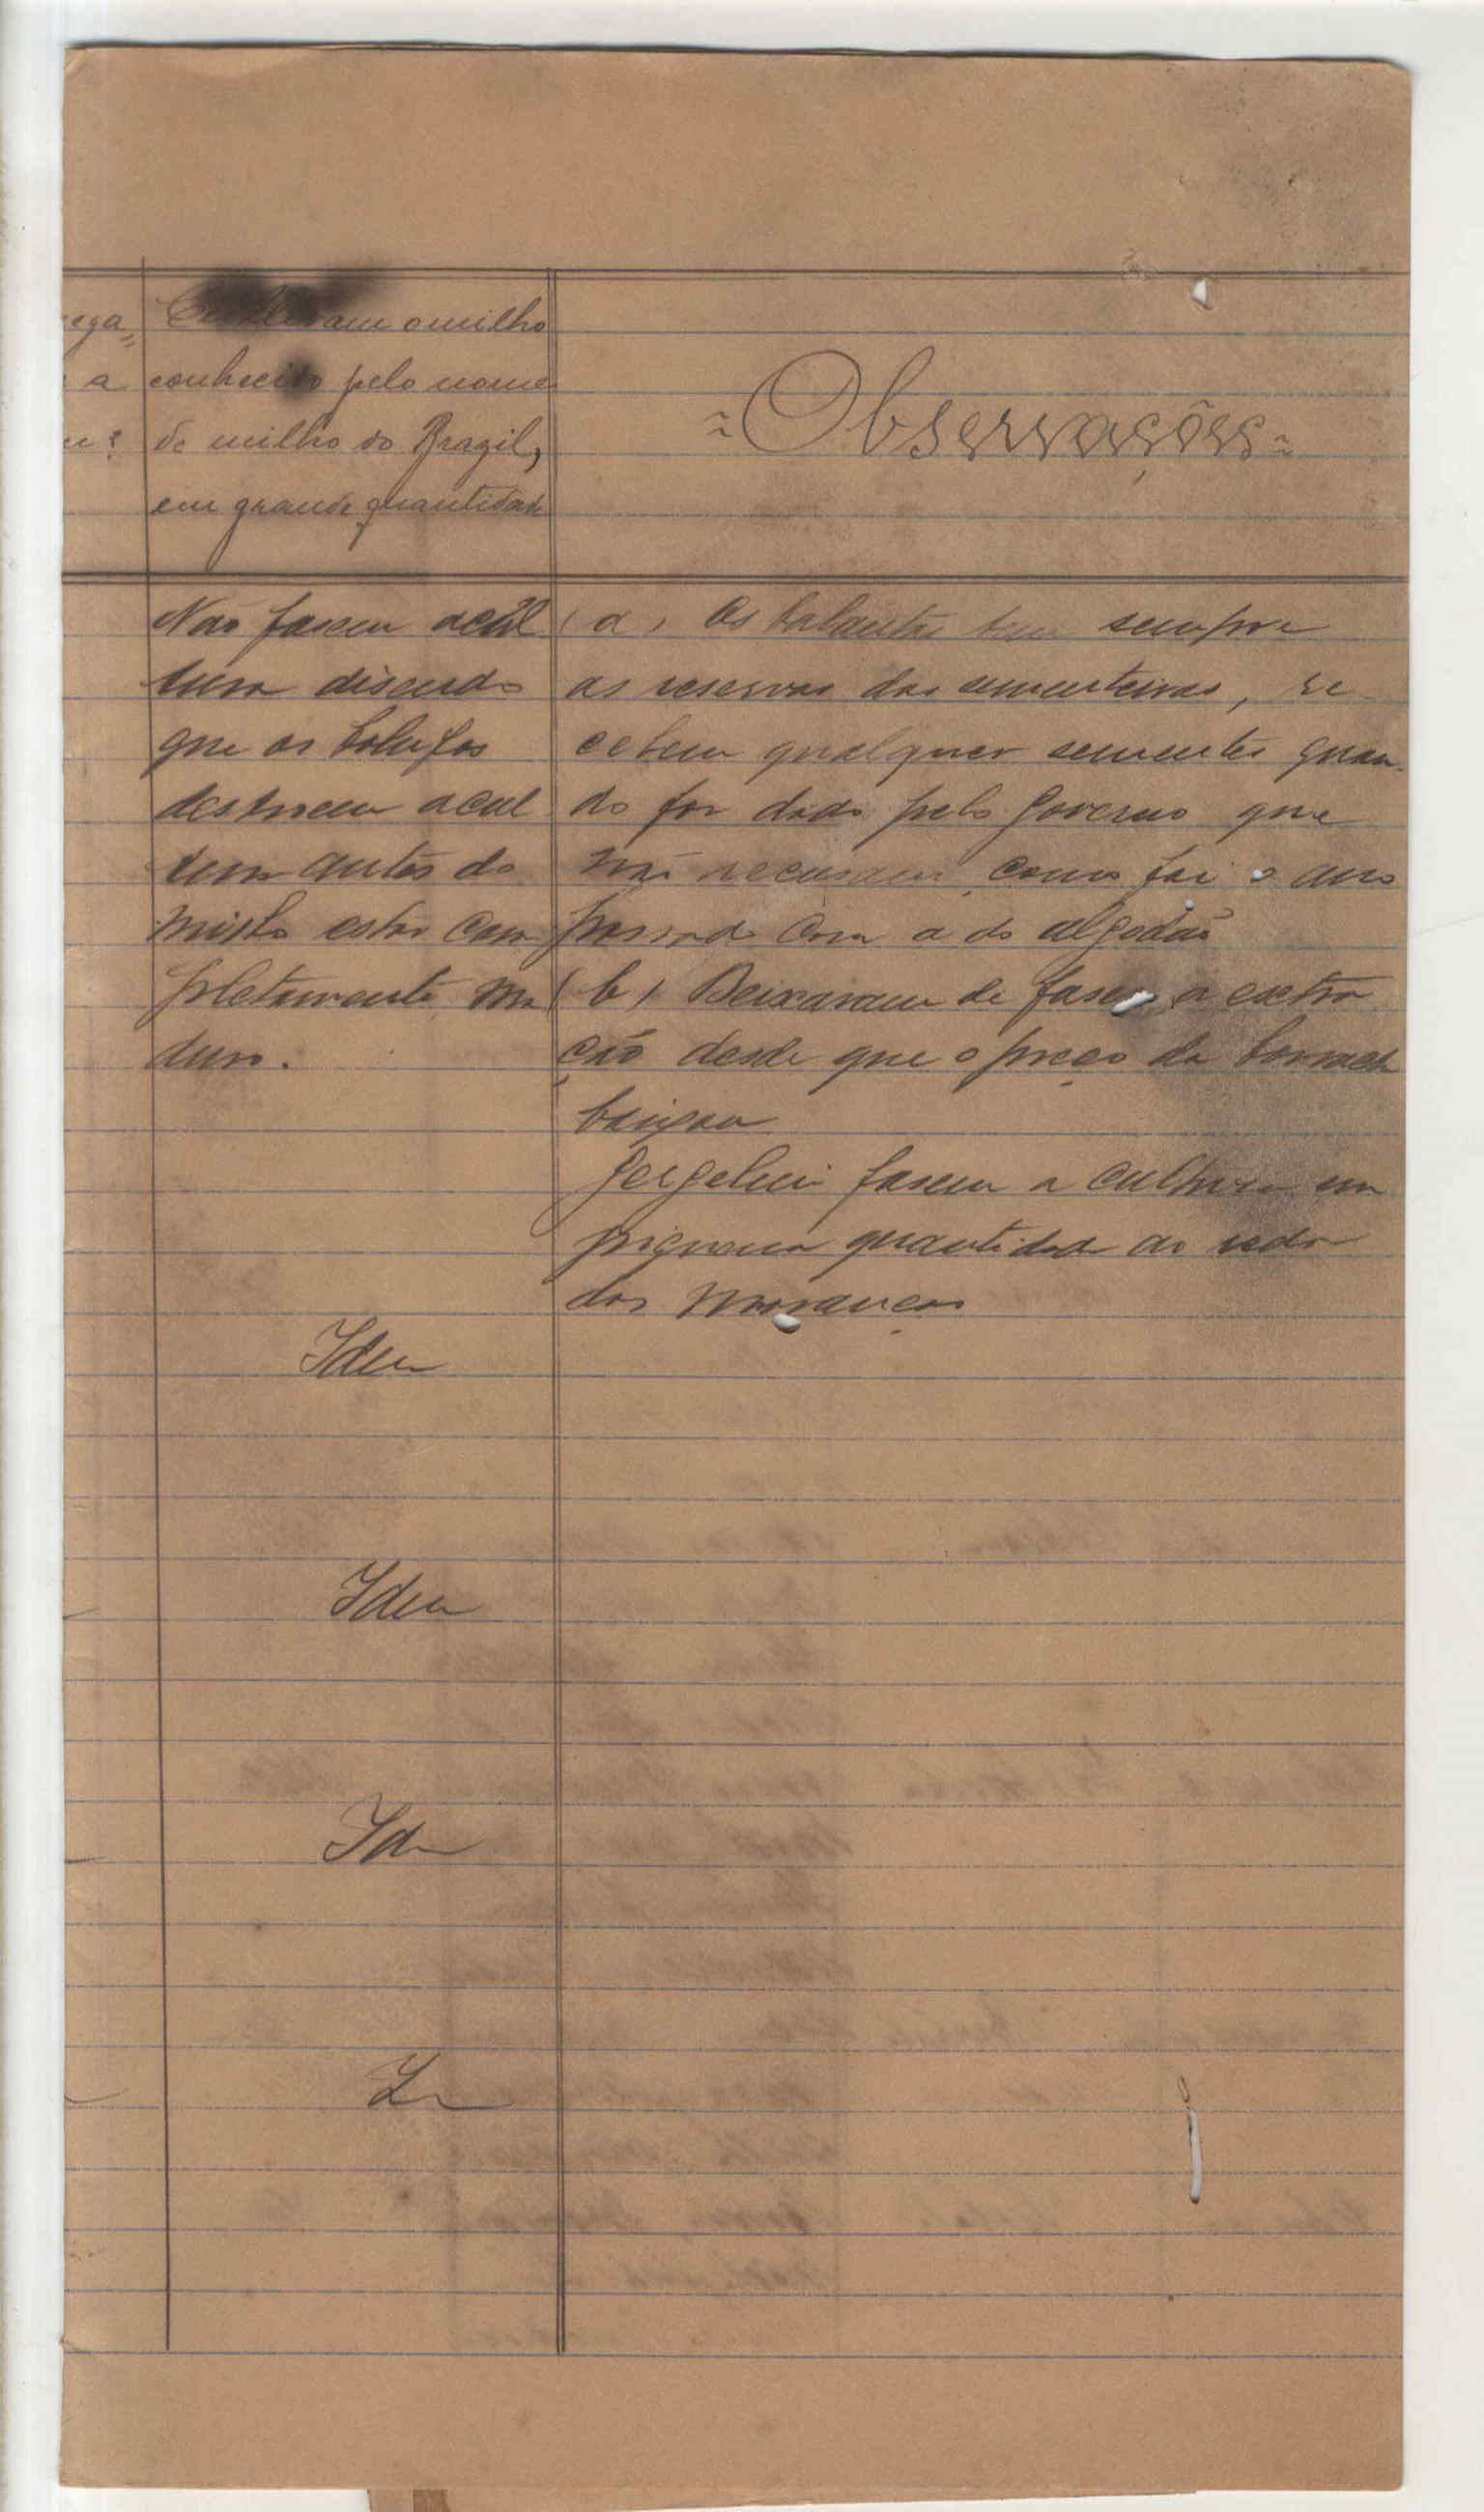 ega=
a
Cultivam o milho
conhecido pelo nome
de milho do Brazil,
em grande quantidade
~Observações~
Não fasem acul
tura disendo
que os bolufos
destroem acul
tura antes do
milho estar com
pletamente ma
duro.
Idem
Idem
Idem
(a) Os balantas tem sempre
as reservas das sementeiras, re
cebem qualquer sementes quan-
do for dado pelo Governo que
não recusam, como foi o ano
passado com a do algodão
(b) Deixaram de faser a extra
ção desde que o preço da borracha
baixou
Gergelim fasem a cultura em
piquena quantidade ao redor
das moranças